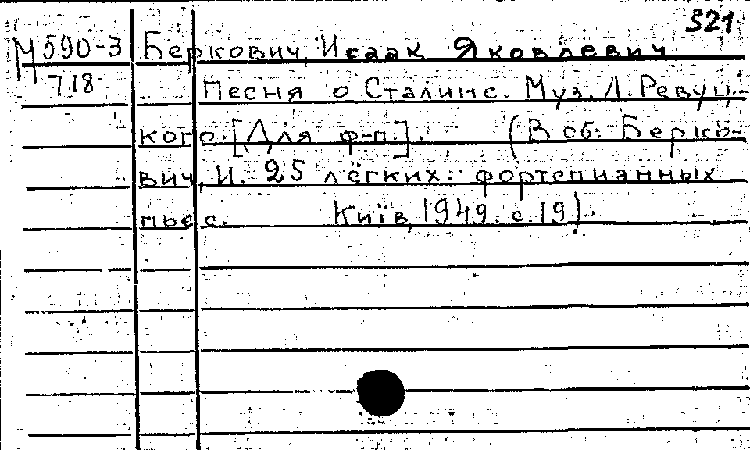 321
М590-3 Беркович, Исаак Яковлевич
718 Песня о Сталине. Муз. Л. Ревуц-
кого [Для ф-п.]. (В об: Берко-
вич, И. 25 лёгких фортепианных
пьес. Київ, 1949. с. 19).